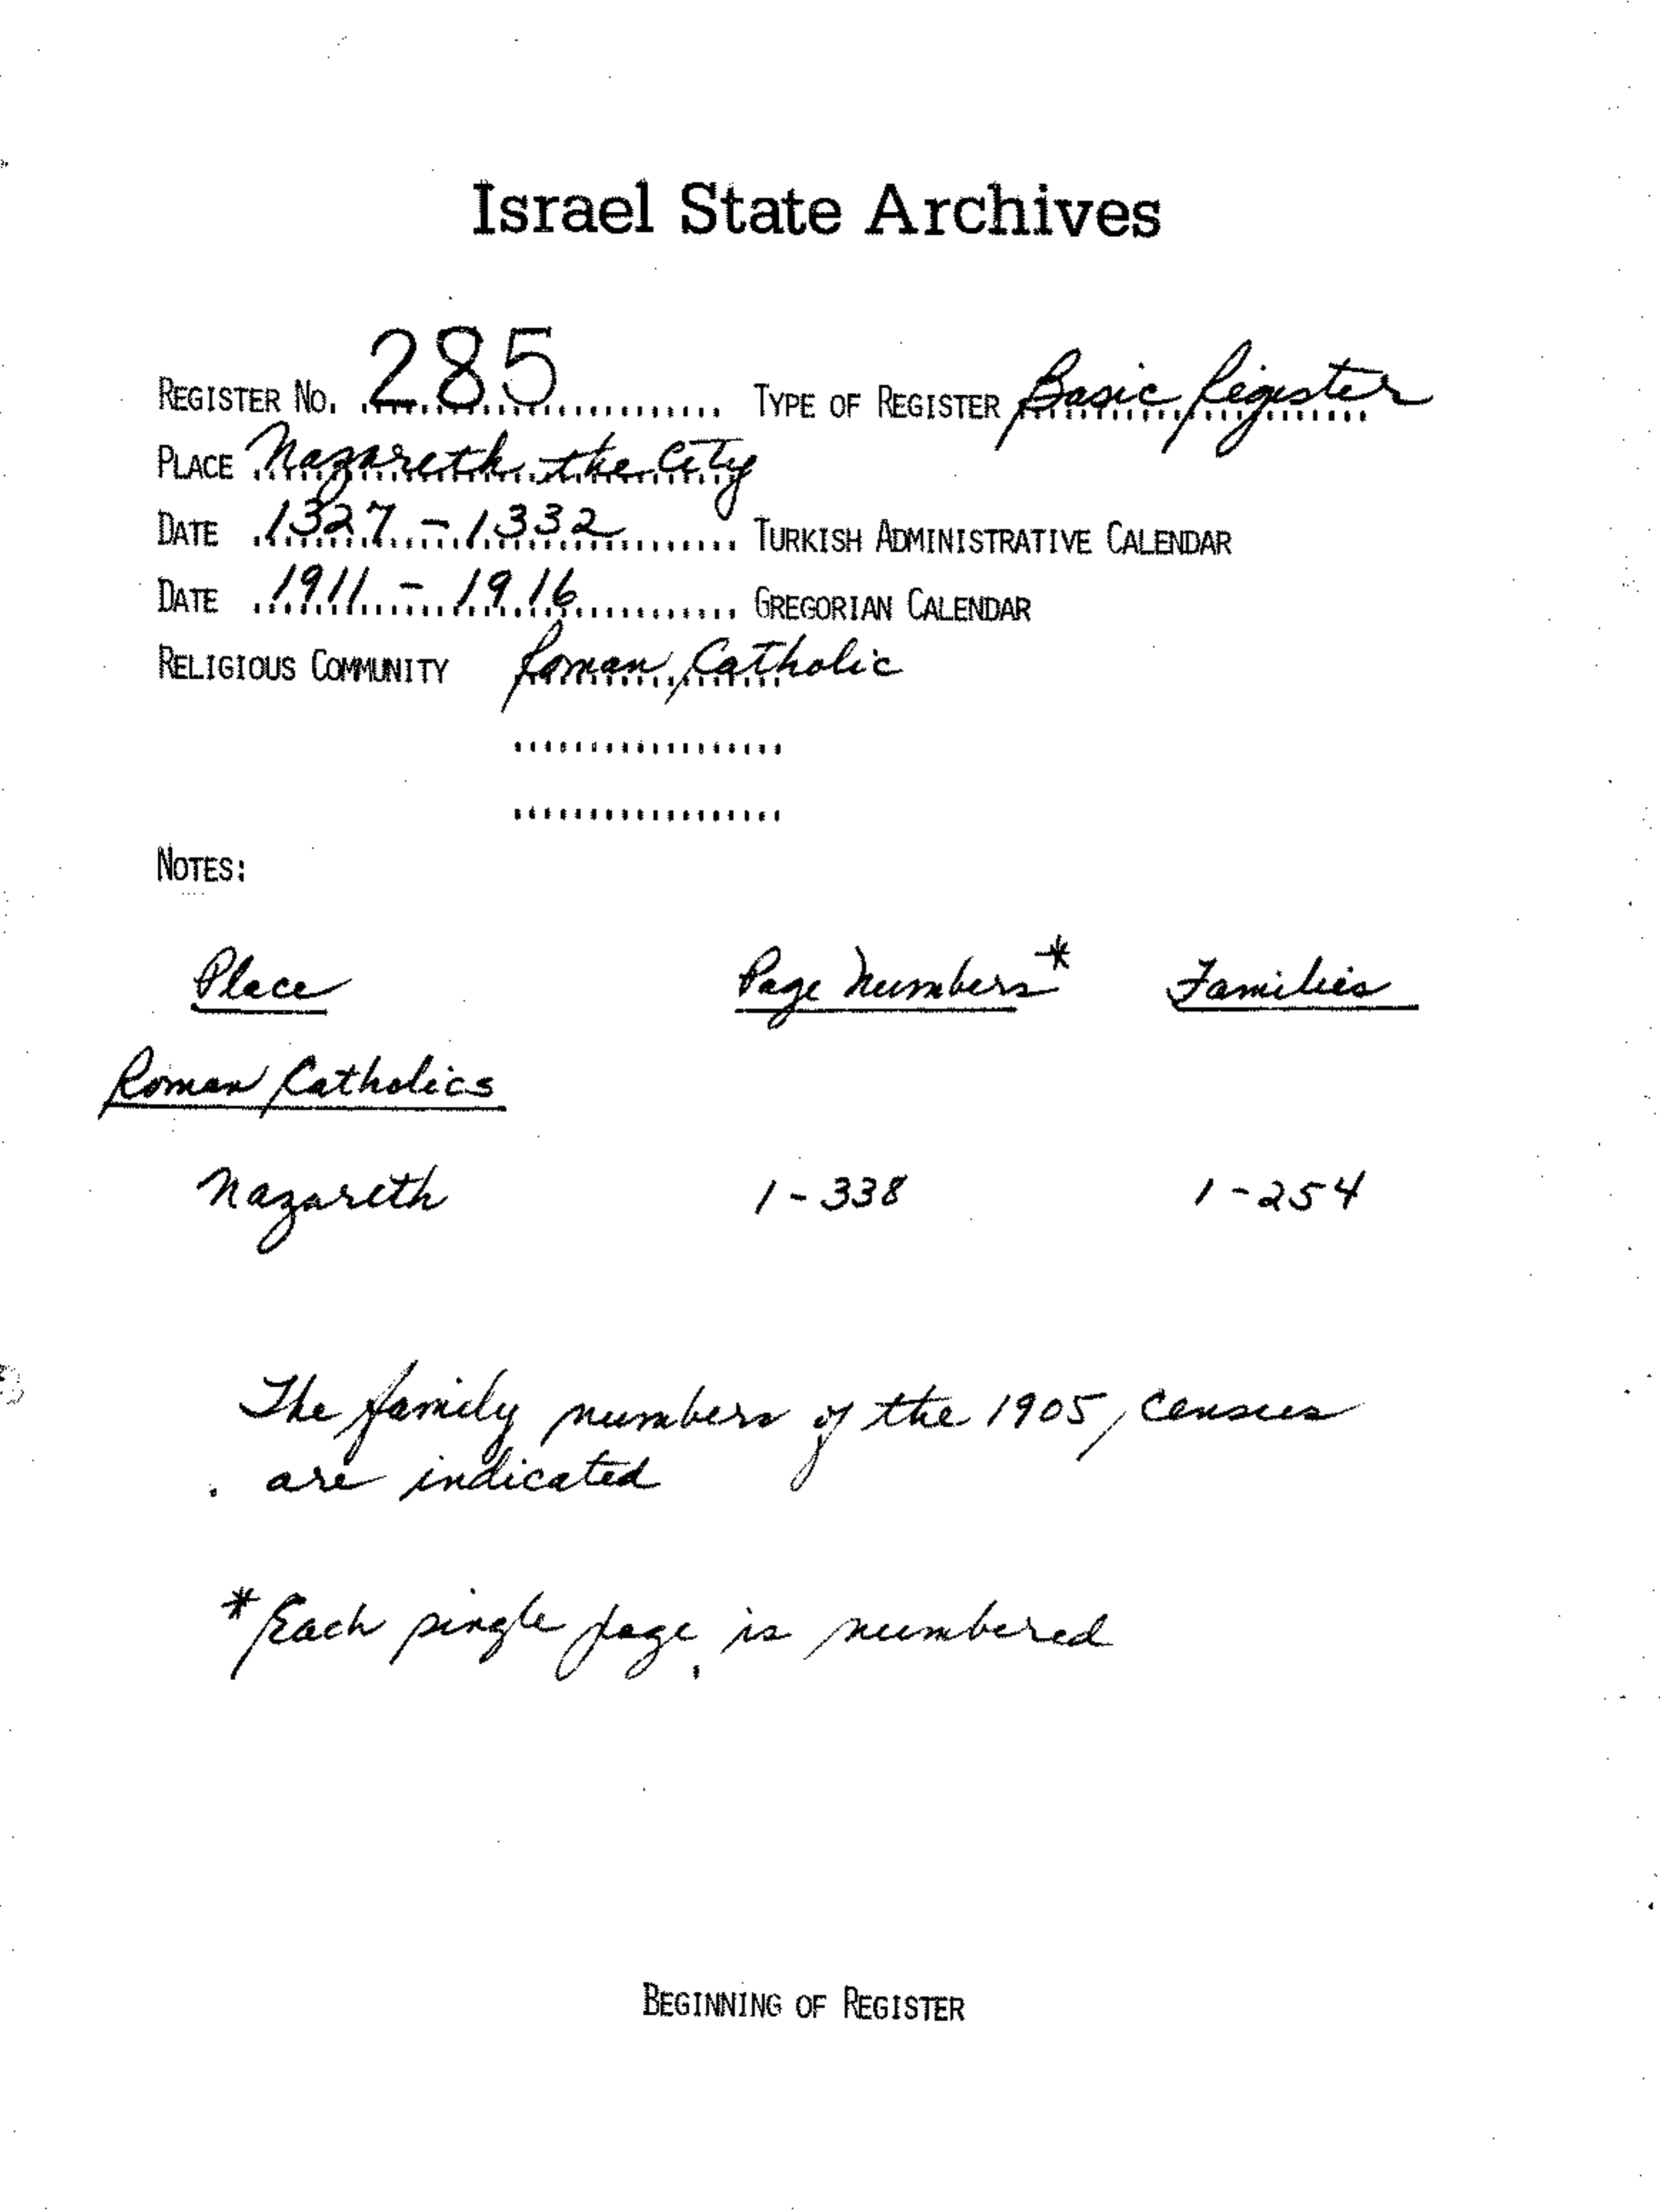 Israel State Archives
REGISTER No. 285 TYPE OF REGISTER Basic Register
PLACE Nazareth the City
DATE 1327 - 1332 TURKISH ADMINISTRATIVE CALENDAR
DATE 1911 - 1916 GREGORIAN CALENDAR
RELIGIOUS COMMUNITY Roman Catholic
NOTES:
Place Page Numbers* Families
Roman Catholics
Nazareth 1-338 1-254
The family numbers of the 1905 census
are indicated
*Each single page is numbered
BEGINNING OF REGISTER